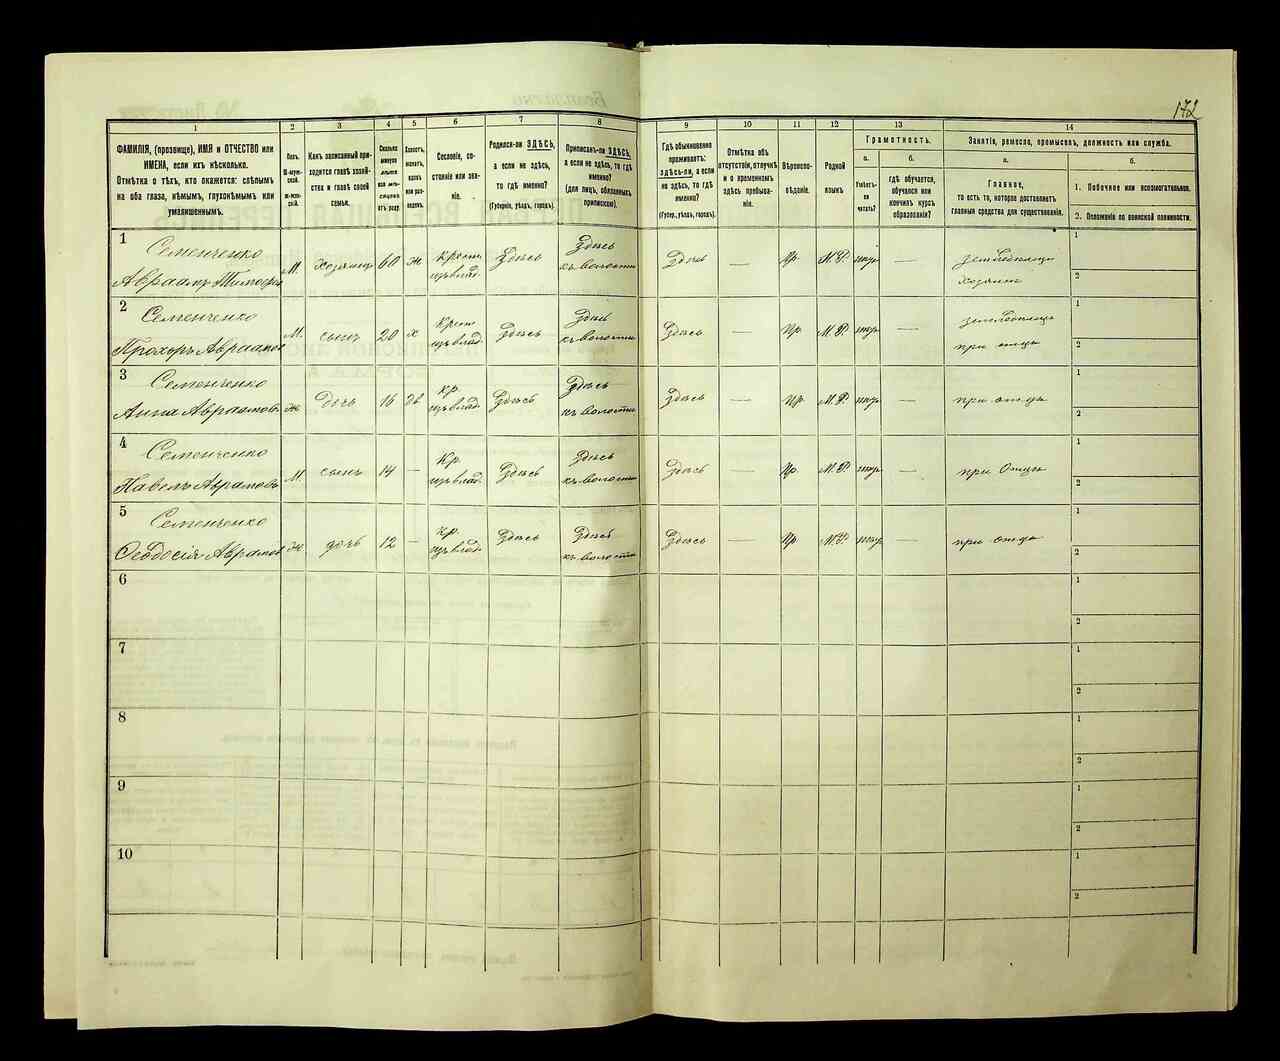 172
1
2
3
4
5
6
7
8
9
10
11
12
13
14
ФАМИЛІЯ, (прозвище), ИМЯ и ОТЧЕСТВО или
ИМЕНА, если ихъ нѣсколько.
Отмѣтка о тѣхъ, кто окажется: слѣпымъ
на оба глаза, нѣмымъ, глухонѣмымъ или
умалишеннымъ.
Полъ.
М-муж-
ской.
Ж-жен-
скій.
Какъ записанный при-
ходится главѣ хозяй-
ства и главѣ своей
семьи.
Сколько
минуло
лѣтъ
или мѣ-
сяцевъ
отъ роду.
Холостъ,
женатъ,
вдовъ
или раз-
веденъ.
Сословіе, со-
стояніе или зва-
ніе.
Родился-ли ЗДѢСЬ,
а если не здѣсь,
то гдѣ именно?
(Губернія, уѣздъ, городъ).
Приписанъ-ли ЗДѢСЬ,
а если не здѣсь, то гдѣ
именно?
(для лицъ, обязанныхъ
припискою).
Гдѣ обыкновенно
проживаетъ:
здѣсь-ли, а если
не здѣсь, то гдѣ
именно?
(Губер., уѣздъ, городъ).
Отмѣтка объ
отсутствіи, отлучкѣ
и о временномъ
здѣсь пребыва-
ніи.
Вѣроиспо-
вѣданіе.
Родной
языкъ
Грамотность.
а.
Умѣетъ-
ли
читать?
б.
гдѣ обучается,
обучался или
кончилъ курсъ
образованія?
Занятіе, ремесло, промыселъ, должность или служба.
а.
Главное,
то есть то, которое доставляетъ
главныя средства для существованія.
б.
1. Побочное или вспомогательное.
2. Положеніе по воинской повинности.
1
Семенченко
Авраамъ Тимоф
М. хозяинъ 60 ж крест. изъ влад. Здѣсь Здѣсь къ волости Здѣсь — Пр. М.Р. — земледѣлецъ хозяинъ
1
2
2
Семенченко
Прохоръ Авраамов
М. сынъ 20 х Крест. изъ влад. Здѣсь Здѣсь къ волости Здѣсь — Пр. М.Р. — земледѣлецъ при отцѣ
1
2
3
Семенченко
Анна Авраамов
ж. дочь 16 дѣ кр. изъ влад. Здѣсь Здѣсь къ волости Здѣсь — Пр. М.Р. — при отцѣ
1
2
4
Семенченко
Павелъ Аврамовъ
М сынъ 14 — Кр. изъ влад. Здѣсь Здѣсь къ волости Здѣсь — Пр. М.Р. — при Отцѣ
1
2
5
Семенченко
Ѳеодосія Аврамов
ж. дочь 12 — Кр. изъ влад. Здѣсь Здѣсь къ волости Здѣсь — Пр М.Р. — при отцѣ
1
2
6
1
2
7
1
2
8
1
2
9
1
2
10
1
2